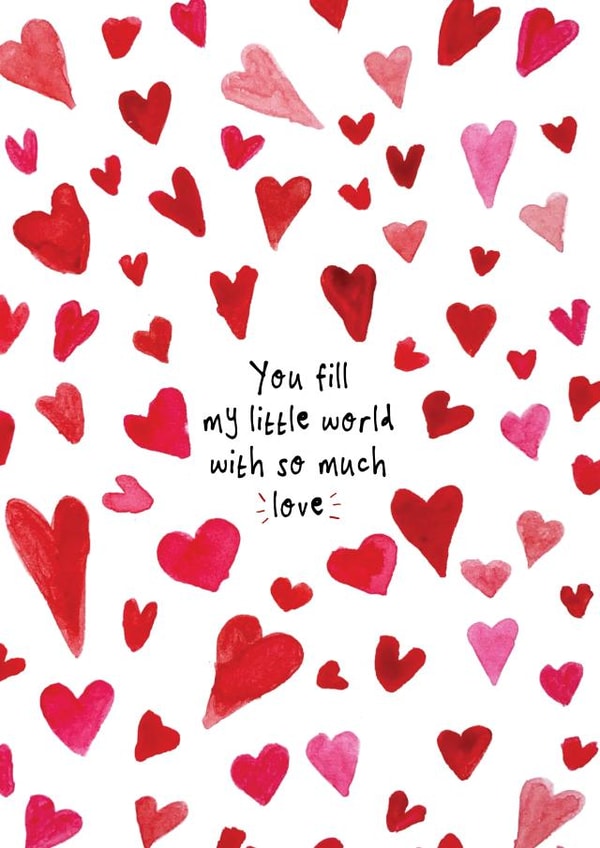 You fill
my little world
with so much
love